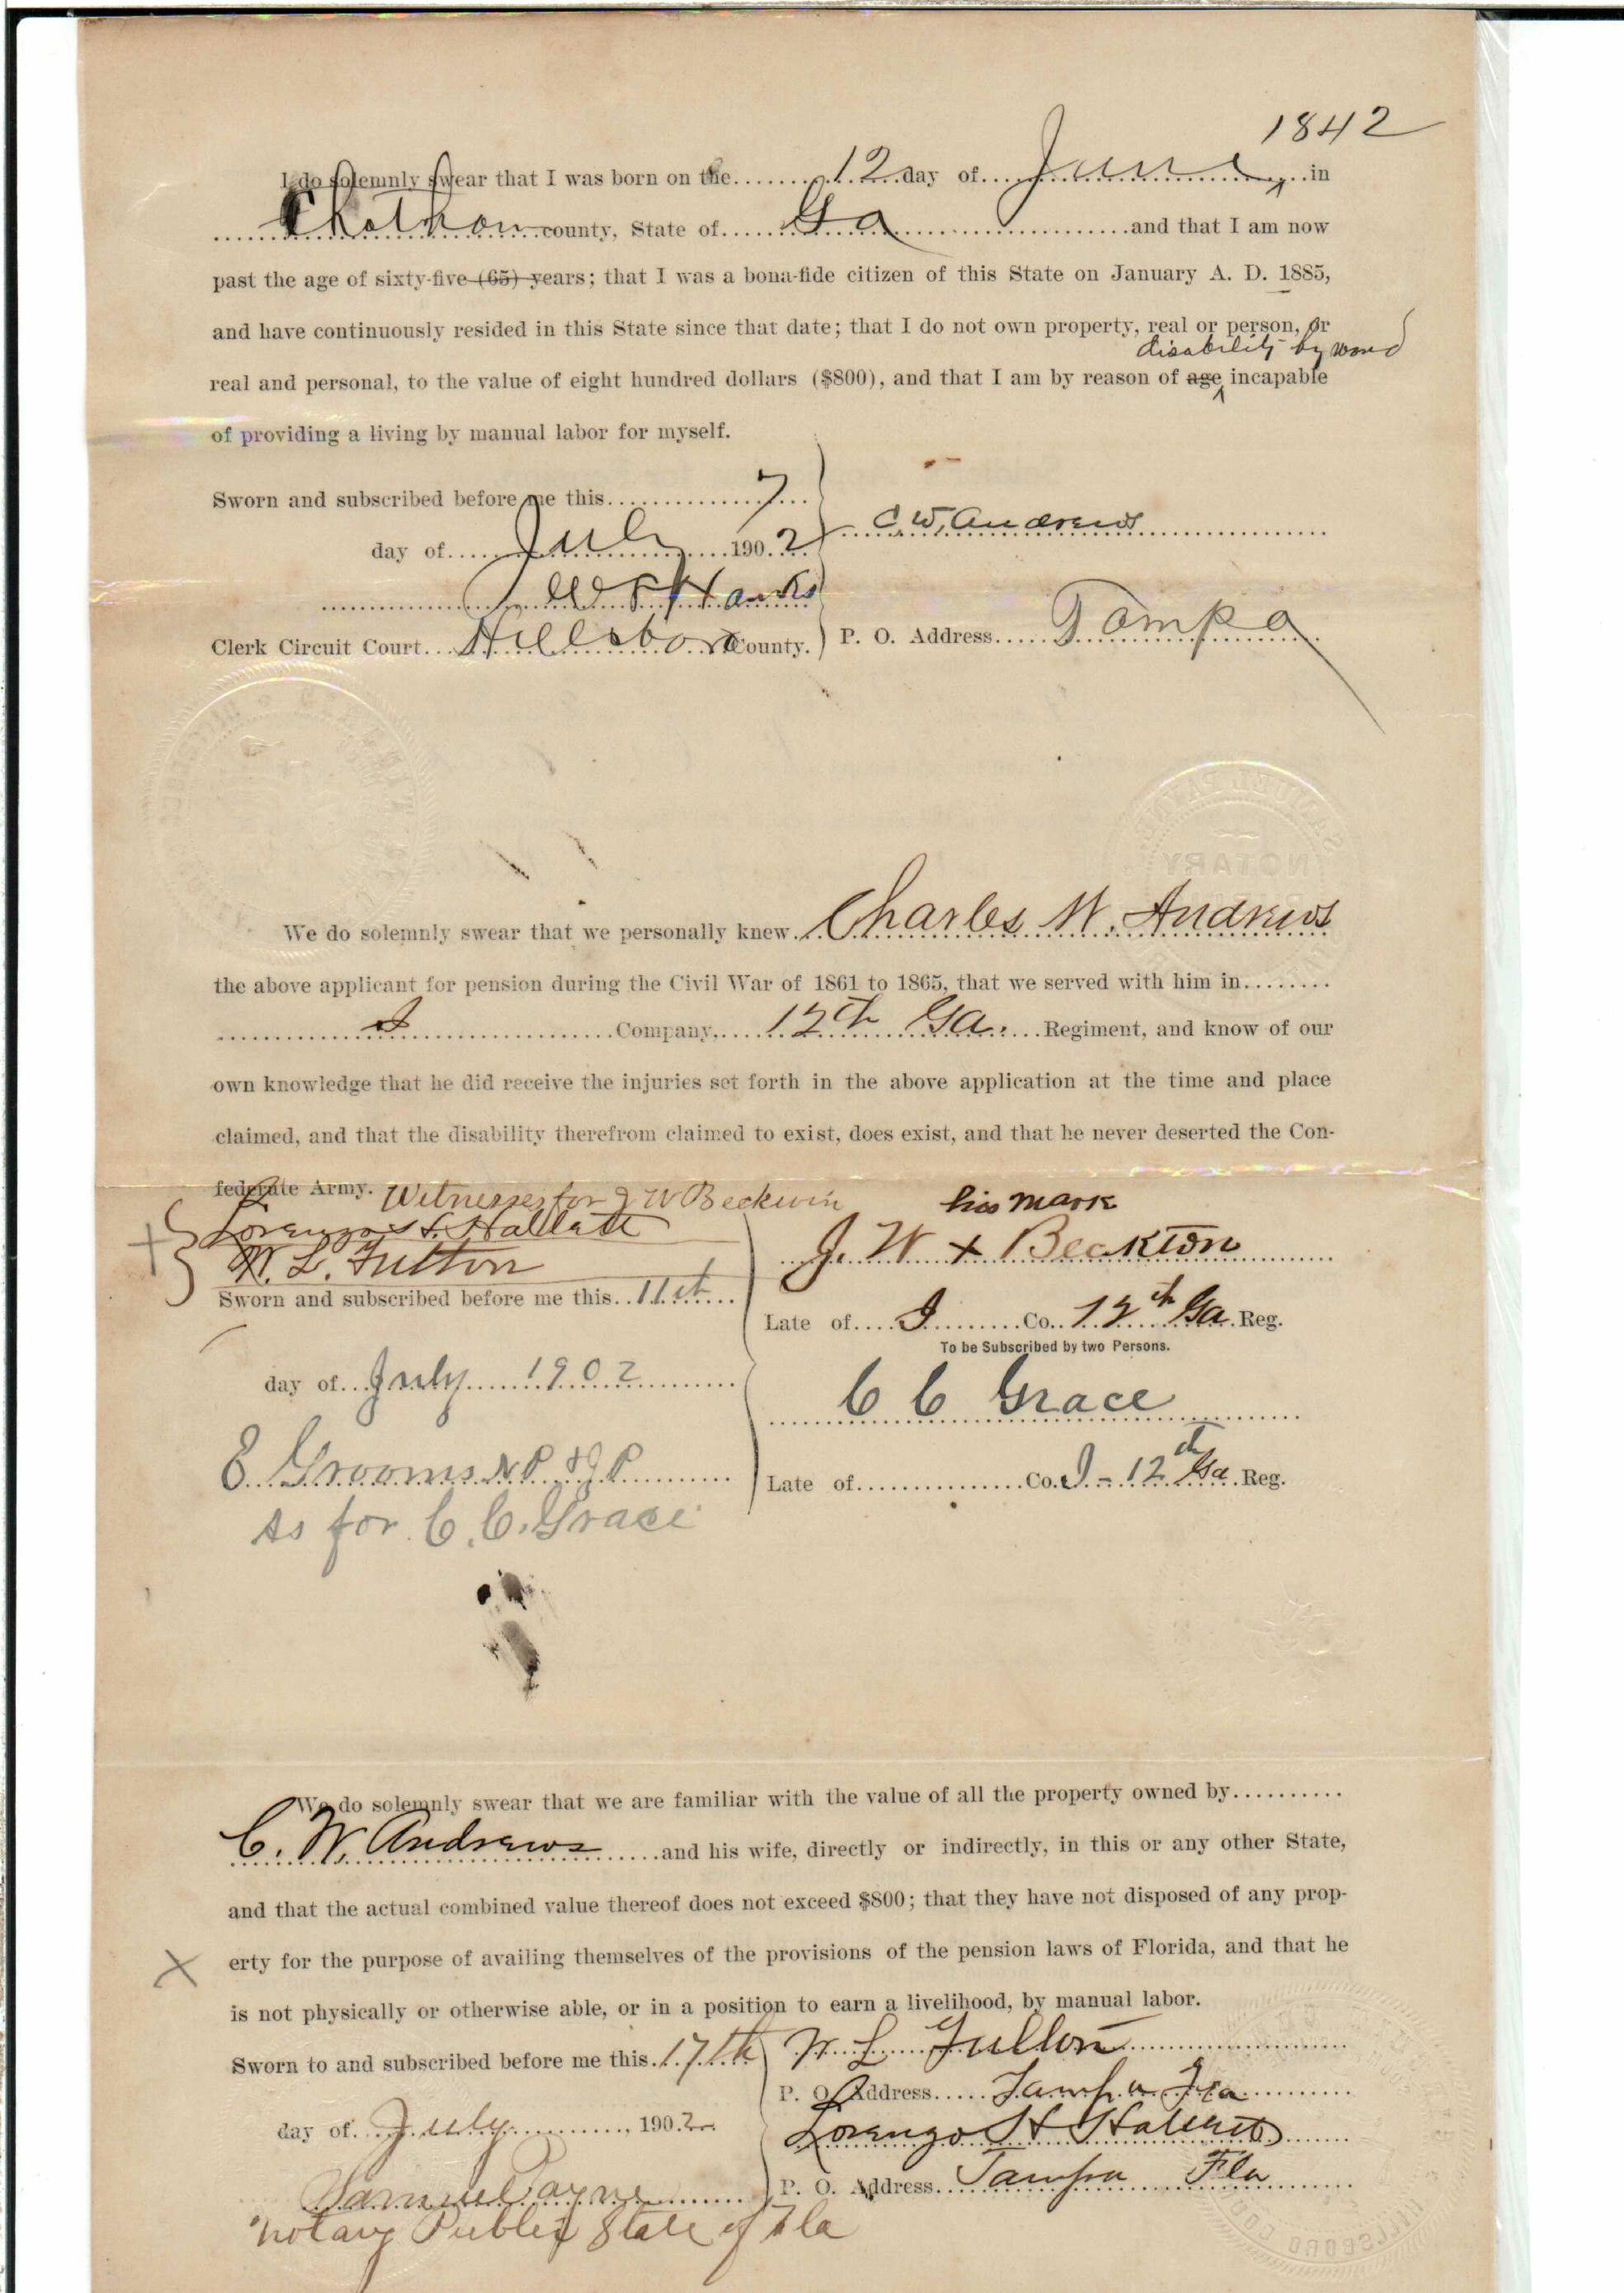 1842
I do solemnly swear that I was born on the 12 day of June in
Chatham county, State of Ga and that I am now
past the age of sixty-five (65) years; that I was a bona-fide citizen of this State on January A. D. 1885,
and have continuously resided in this State since that date; that I do not own property, real or person, or
disability by wound
real and personal, to the value of eight hundred dollars ($800), and that I am by reason of age incapable
of providing a living by manual labor for myself.
Sworn and subscribed before me this 7
C. W. Andrews
day of July 1902
Clerk Circuit Court Hillsboro County. P. O. Address Tampa
SAMUEL PAYNE
NOTARY
We do solemnly swear that we personally knew Charles W. Andrews
the above applicant for pension during the Civil War of 1861 to 1865, that we served with him in
I Company, 12th Ga. Regiment, and know of our
own knowledge that he did receive the injuries set forth in the above application at the time and place
claimed, and that the disability therefrom claimed to exist, does exist, and that he never deserted the Con-
federate Army. Witnesses for J W Beckwin his mark
W. L. Fulton
J. W x Beckton
Sworn and subscribed before me this 11th
Late of I Co. 12th Ga Reg.
To be Subscribed by two Persons.
day of July 1902
C C Grace
E Grooms N P & J P
Late of Co. I - 12th Ga Reg.
As for C. C. Grace
We do solemnly swear that we are familiar with the value of all the property owned by
C. W. Andrews and his wife, directly or indirectly, in this or any other State,
and that the actual combined value thereof does not exceed $800; that they have not disposed of any prop-
erty for the purpose of availing themselves of the provisions of the pension laws of Florida, and that he
X
is not physically or otherwise able, or in a position to earn a livelihood, by manual labor.
Sworn to and subscribed before me this 17th W L Fulton
P. O. Address Tampa Fla
day of July, 1902
Lorenzo
Samuel Payne P. O. Address Tampa Fla
Notary Public State of Fla